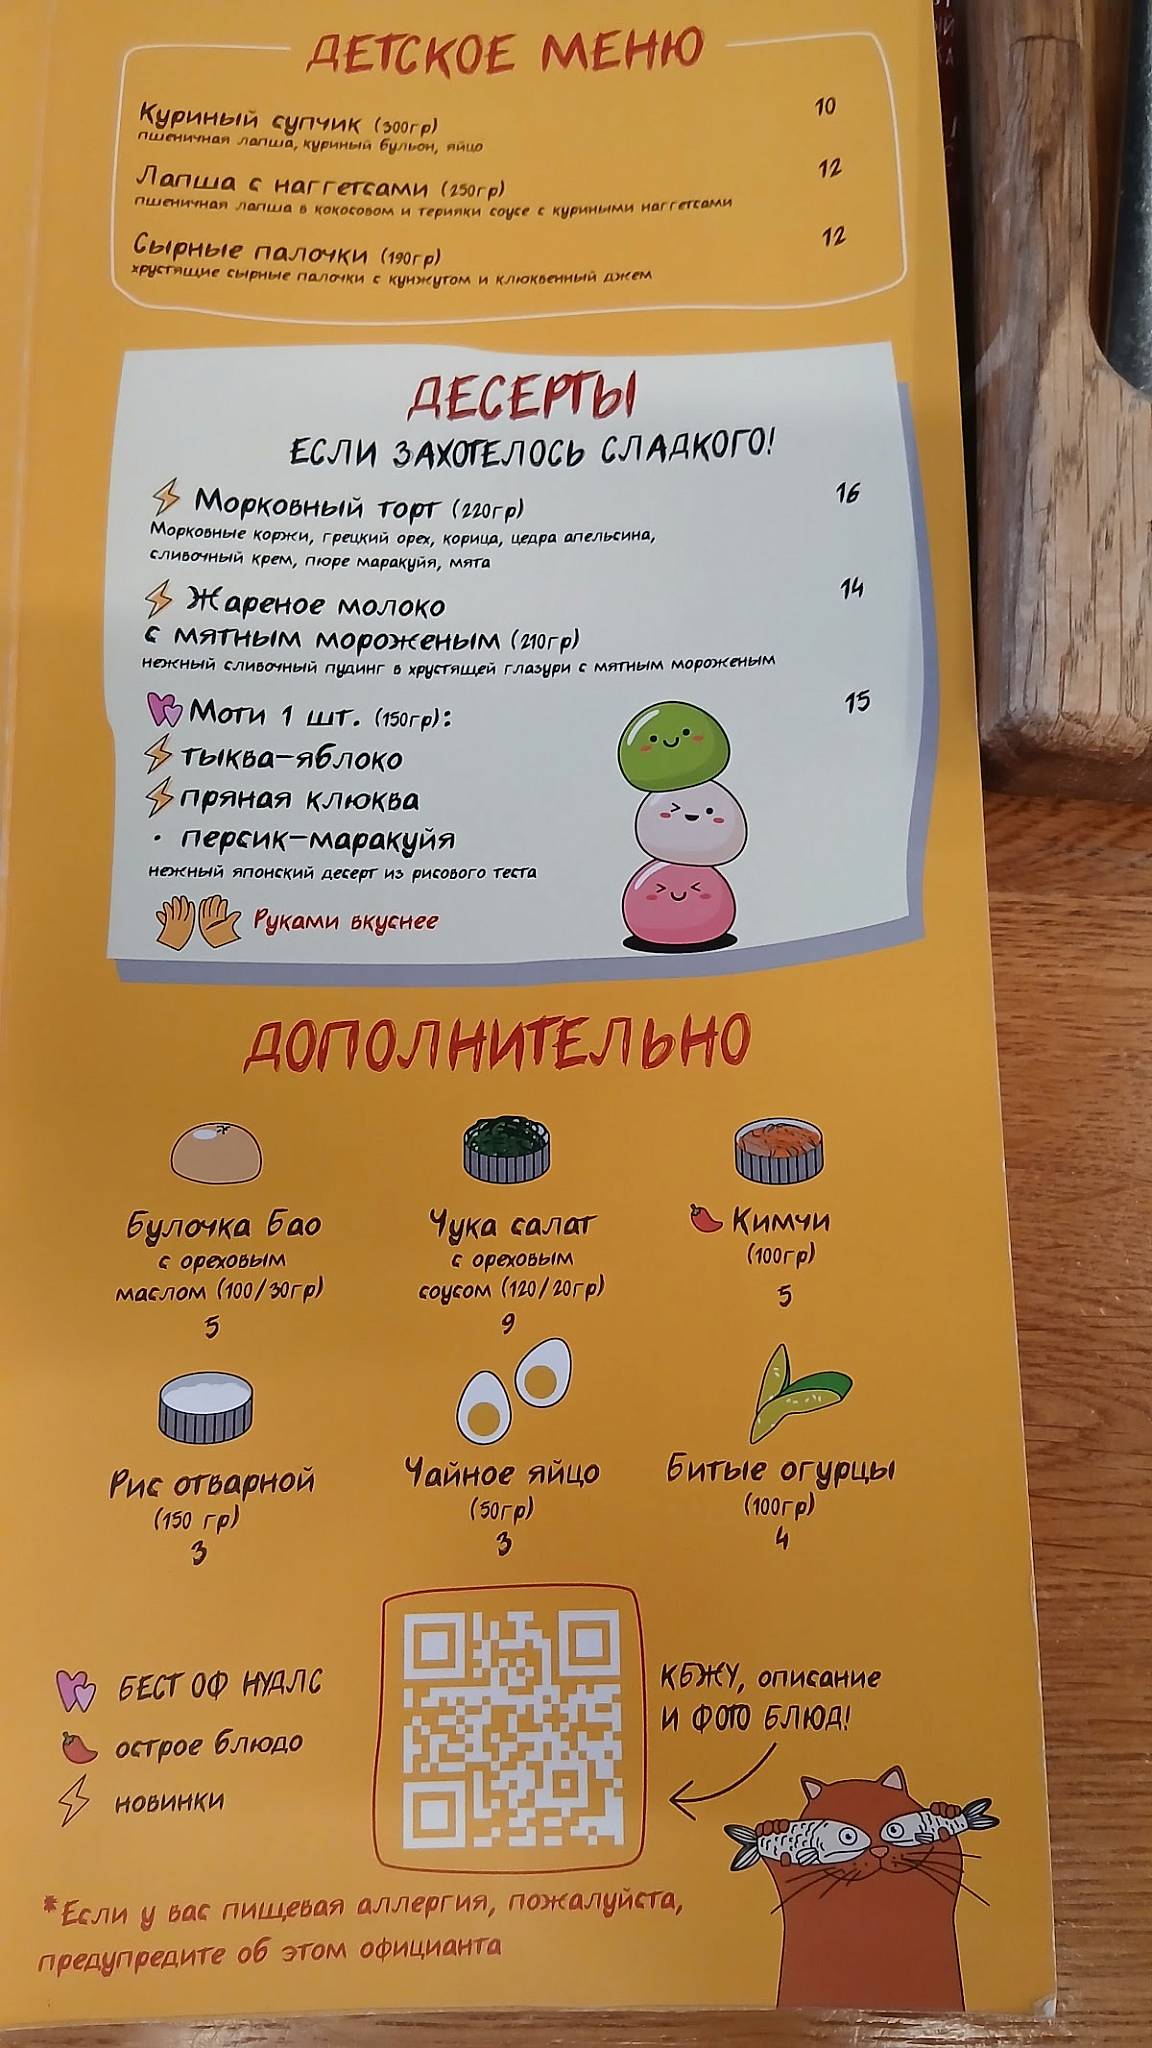 ДЕТСКОЕ МЕНЮ
Куриный супчик (300гр) 10
пшеничная лапша, куриный бульон, яйцо
Лапша с наггетсами (250гр) 12
пшеничная лапша в кокосовом и терияки соусе с куриными наггетсами
Сырные палочки (190гр) 12
хрустящие сырные палочки с кунжутом и клюквенный джем
ДЕСЕРТЫ
ЕСЛИ ЗАХОТЕЛОСЬ СЛАДКОГО!
Морковный торт (220гр) 16
Морковные коржи, грецкий орех, корица, цедра апельсина,
сливочный крем, пюре маракуйя, мята
Жареное молоко 14
с мятным мороженым (210гр)
нежный сливочный пудинг в хрустящей глазури с мятным мороженым
Моти 1 шт. (150гр): 15
тыква-яблоко
пряная клюква
• персик-маракуйя
нежный японский десерт из рисового теста
Руками вкуснее
ДОПОЛНИТЕЛЬНО
Булочка Бао
с ореховым
маслом (100/30гр)
5
Чука салат
с ореховым
соусом (120/20гр)
9
Кимчи
(100гр)
5
Рис отварной
(150 гр)
3
Чайное яйцо
(50гр)
3
Битые огурцы
(100гр)
4
БЕСТ ОФ НУДЛС
острое блюдо
новинки
КБЖУ, описание
И ФОТО БЛЮД!
*Если у вас пищевая аллергия, пожалуйста,
предупредите об этом официанта